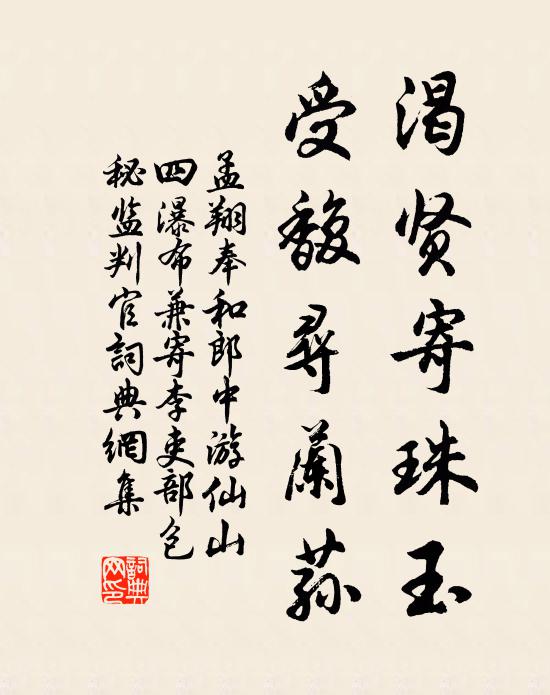 渴贤寄珠玉
受馥尋蘭荪
孟翔奉和郎中游仙山
四瀑布兼寄李吏部包
秘监判官詞典網集
詞典网印